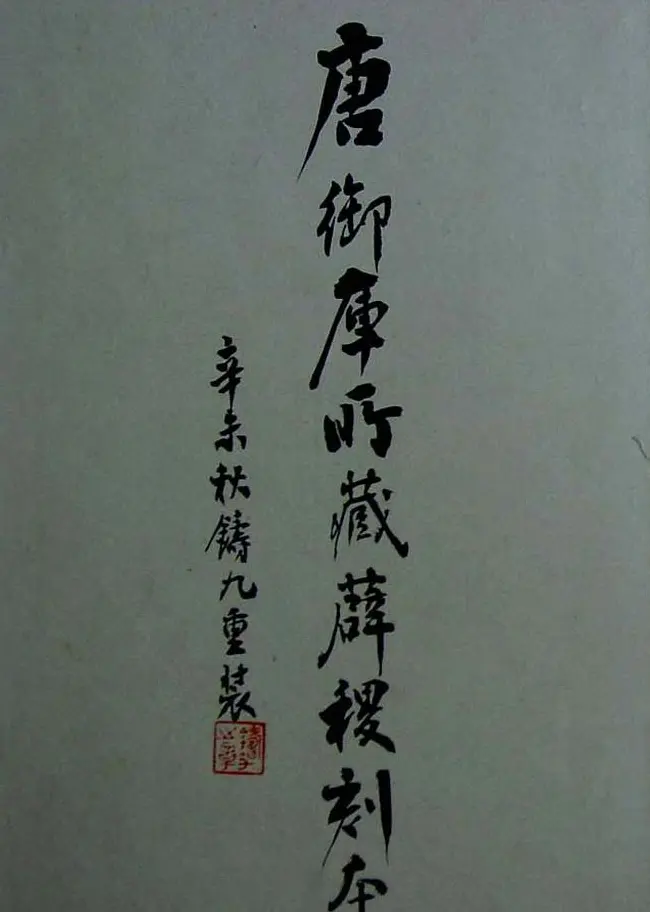 唐御庫所藏薛稷刻本
辛未秋鑄九重裝